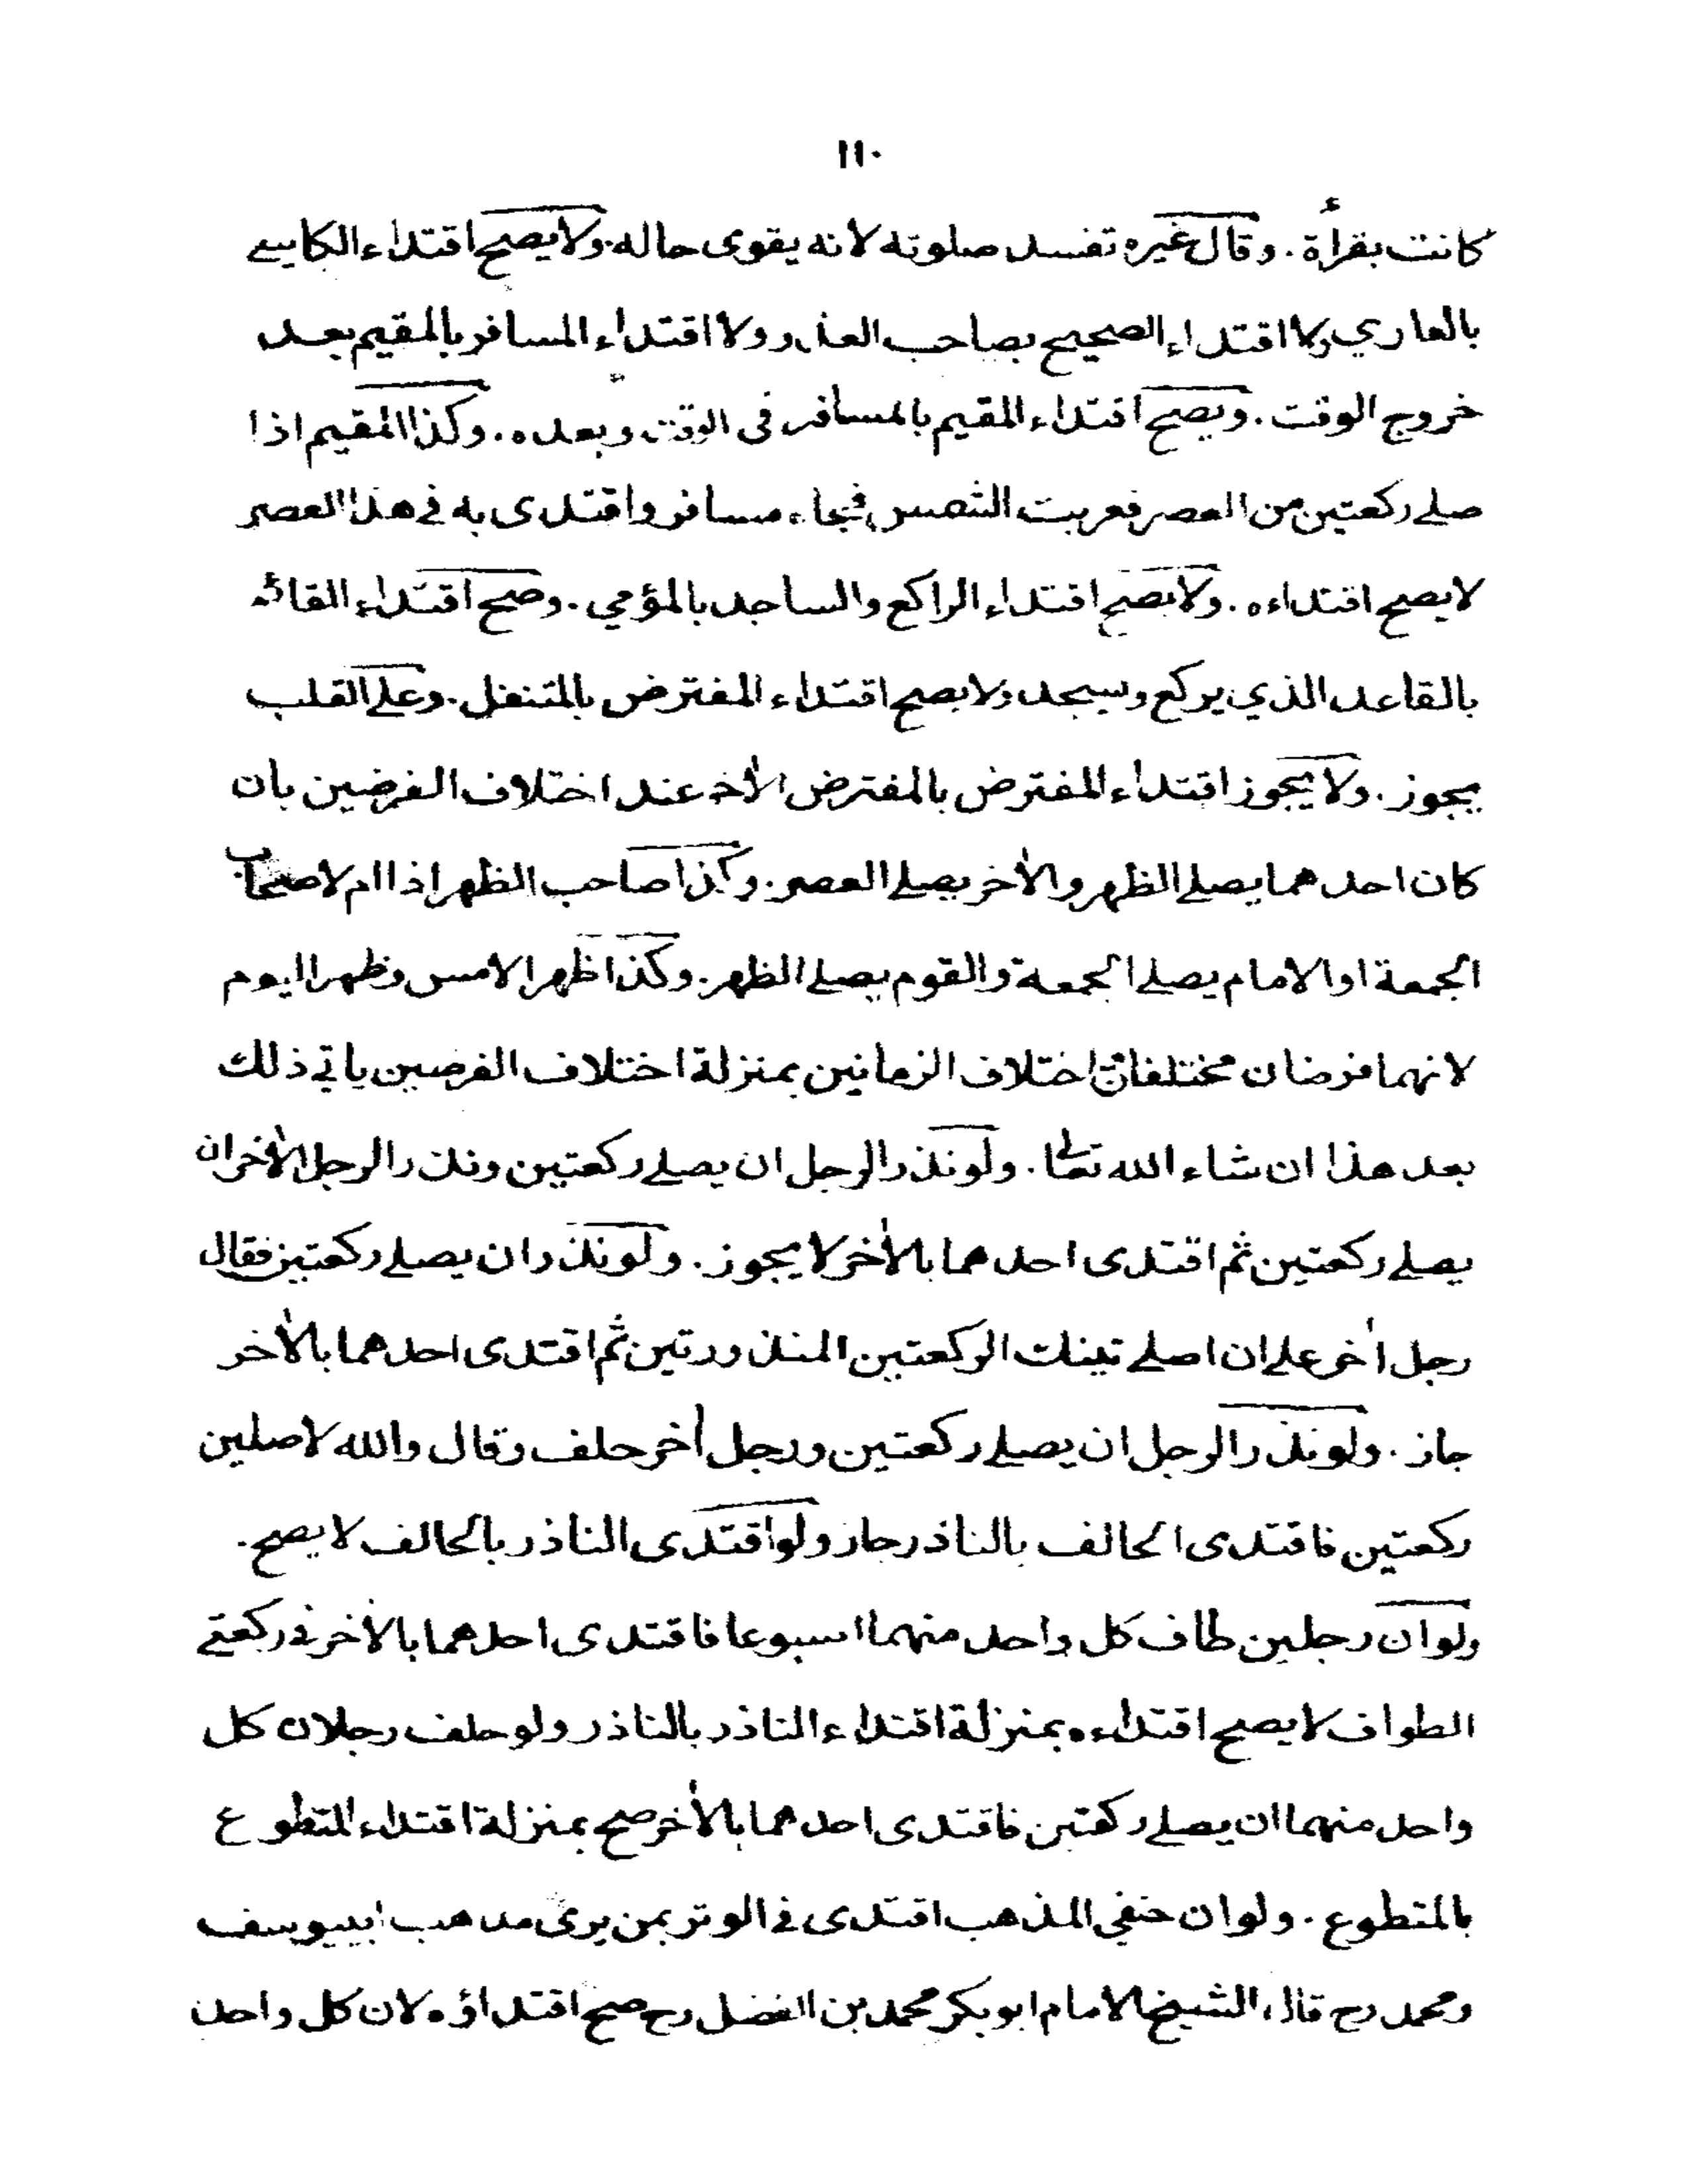 ١١٠
كانت بقرأة . وقال غيره تفسد صلوته لانه يقوى حاله . ولا يصح اقتداء الكاسي
بالعاري ولا اقتداء الصحيح بصاحب العذر ولا اقتداء المسافر بالمقيم بعد
خروج الوقت . ويصح اقتداء المقيم بالمسافر فى الوقت وبعده . وكذا المقيم اذا
صلے ركعتين من العصر فغربت الشمس فجاء مسافر واقتدى به فے هذا العصر
لا يصح اقتداءه . ولا يصح اقتداء الراكع والساجد بالمؤمي . وصح اقتداء القائم
بالقاعد الذي يركع ويسجد ولا يصح اقتداء المفترض بالمتنفل . وعلے القلب
يجوز . ولا يجوز اقتداء المفترض بالمفترض الأخر عند اختلاف الفرضين بان
كان احدهما يصلے الظهر والأخر يصلے العصر . وكذا صاحب الظهر اذا ام لاصحاب
الجمعة او الامام يصلے الجمعة والقوم يصلے الظهر . وكذا ظهر الامس وظهر اليوم
لانهما فرضان مختلفان اختلاف الزمانين بمنزلة اختلاف الفرضين ياتے ذلك
بعد هذا ان شاء الله تعا . ولو نذر الرجل ان يصلے ركعتين ونذر الرجل الأخر ان
يصلے ركعتين ثم اقتدى احدهما بالأخر لا يجوز . ولو نذر ان يصلے ركعتين فقال
رجل أخر علے ان اصلے تينك الركعتين المنذورتين ثم اقتدى احدهما بالأخر
جاز . ولو نذر الرجل ان يصلے ركعتين ورجل أخر حلف وقال والله لاصلين
ركعتين فاقتدى الحالف بالناذر جاز ولو اقتدى الناذر بالحالف لا يصح .
ولو ان رجلين طاف كل واحد منهما اسبوعا فاقتدى احدهما بالأخر فے ركعتے
الطواف لا يصح اقتداءه بمنزلة اقتداء الناذر بالناذر ولو حلف رجلان كل
واحد منهما ان يصلے ركعتين فاقتدى احدهما بالأخر صح بمنزلة اقتداء المتطوع
بالمتطوع . ولو ان حنفي المذهب اقتدى فے الوتر بمن يرى مذهب ابييوسف
ومحمد رح قال الشيخ الامام ابو بكر محمد بن الفضل رح صح اقتداؤه لان كل واحد